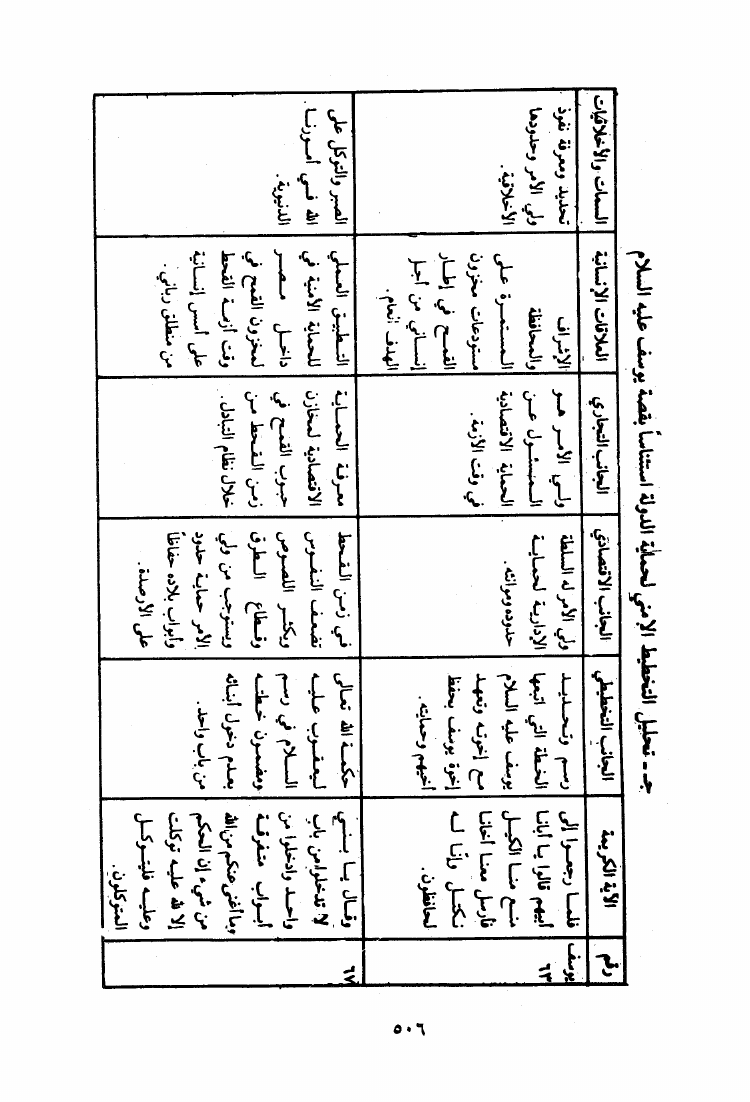 جـ - تحليل التخطيط الأمني لحماية الدولة استئناساً بقصة يوسف عليه السلام
رقم
الآية الكريمة
الجانب التخطيطي
الجانب الاقتصادي
الجانب التجاري
العلاقات الإنسانية
السمات والأخلاقيات
يوسف
٦٣
فلما رجعوا إلى
أبيهم قالوا يا أبانا
منع منا الكيل
فأرسل معنا أخانا
نكتل وإنا له
لحافظون.
رسم وتحديد
الخطة التي اتبعها
يوسف عليه السلام
مع إخوته وتعهد
إخوة يوسف بحفظ
أخيهم وحمايته.
ولي الأمر له السلطة
الإدارية لحماية
حدوده وموانئه.
ولي الأمر هو
المسئول عن
الحماية الاقتصادية
في وقت الأزمة.
الإشراف
والمحافظة
المستمرة على
مستودعات مخزون
القمح في إطار
إنساني من أجل
الهدف العام.
تحديد ومعرفة نفوذ
ولي الأمر وحدودها
الأخلاقية.
٦٧
وقال يا بني
لا تدخلوا من باب
واحد وادخلوا من
أبواب متفرقة
وما أغني عنكم من الله
من شيء إن الحكم
إلا لله عليه توكلت
وعليه فليتوكل
المتوكلون.
حكمة الله تعالى
ليعقوب عليه
السلام في رسم
ومضمون خطته
بعدم دخول أبنائه
من باب واحد.
في زمن القحط
تضعف النفوس
ويكثر اللصوص
وقطاع الطرق
ويستوجب من ولي
الأمر حماية حدود
وأبواب بلاده حفاظاً
على الأرصدة.
معرفة الحماية
الاقتصادية لمخازن
حبوب القمح في
زمن القحط من
خلال نظام التبادل.
التطبيق العملي
للحماية الأمنية في
داخل مصر
لمخزون القمح في
وقت أزمة القحط
على أسس إنسانية
من منطلق رباني.
الصبر والتوكل على
الله في أمورنا
الدنيوية.
٥٠٦